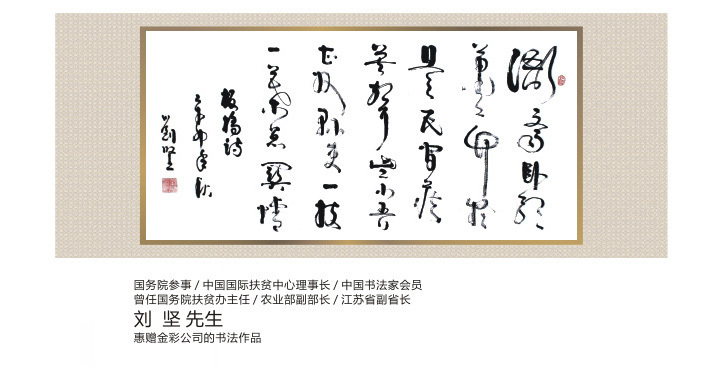 衙齋卧聽
蕭蕭竹疑
是民間疾
苦聲些小吾
曹州縣吏一枝
一葉總關情
板橋詩
年秋
劉堅
国务院参事 / 中国国际扶贫中心理事长 / 中国书法家会员
曾任国务院扶贫办主任 / 农业部副部长 / 江苏省副省长
刘 坚 先生
惠赠金彩公司的书法作品